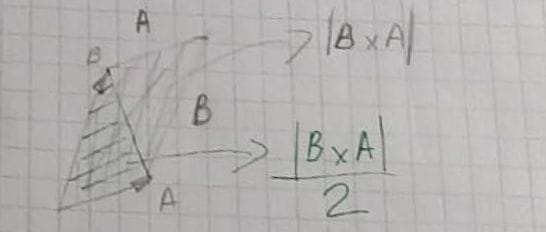 A
B
|B x A|
B
|B x A|
2
A